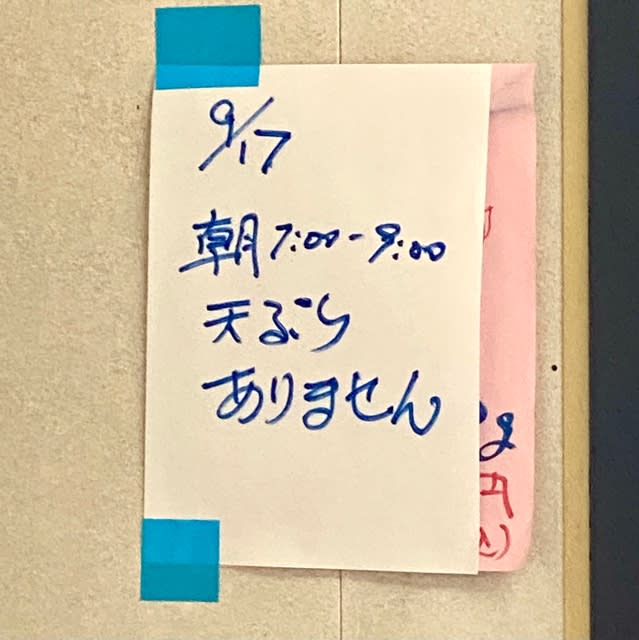 9/17
朝7:00-9:00
天ぷら
ありません
g
円
込)